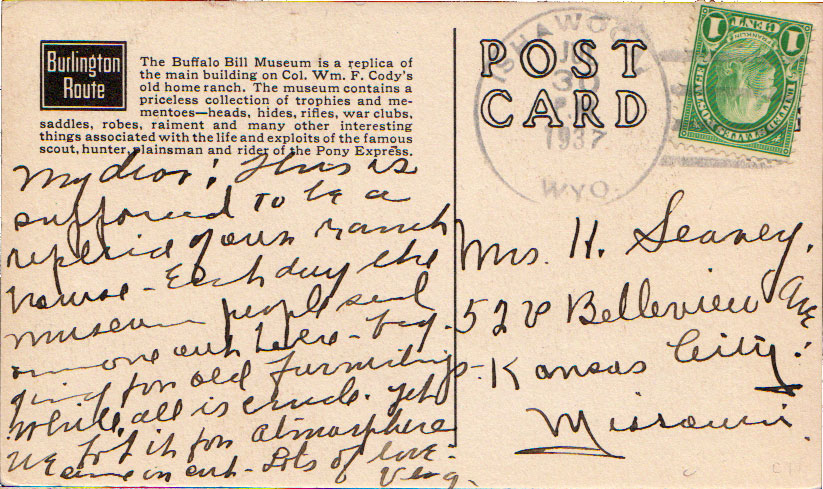 Burlington
Route
The Buffalo Bill Museum is a replica of
the main building on Col. Wm. F. Cody's
old home ranch. The museum contains a
priceless collection of trophies and me-
mentoes—heads, hides, rifles, war clubs,
saddles, robes, raiment and many other interesting
things associated with the life and exploits of the famous
scout, hunter, plainsman and rider of the Pony Express.
My dear! This is
supposed to be a
replica of our ranch
house - Each day the
museum people send
some one out here - beg-
ging for old furnishings
While all is crude. yet
we love it for atmosphere
out - Lots of love -
POST
CARD
ISHAWOOA
30
1937
WYO.
1 CENT 1
FRANKLIN
Mrs. H. Seaney.
528 Belleview Ave
Kansas City!
Missouri.